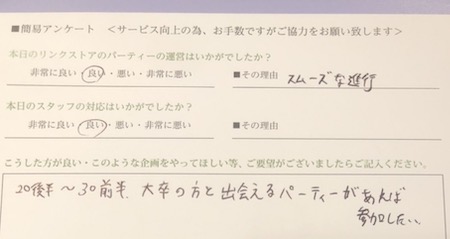 ■簡易アンケート ＜サービス向上の為、お手数ですがご協力をお願い致します＞
本日のリンクストアのパーティーの運営はいかがでしたか？
非常に良い・良い・悪い・非常に悪い ■その理由 スムーズな進行
本日のスタッフの対応はいかがでしたか？
非常に良い・良い・悪い・非常に悪い ■その理由
こうした方が良い・このような企画をやってほしい等、ご要望がございましたらご記入ください。
20後半～30前半、大卒の方と出会えるパーティーがあれば
参加したい